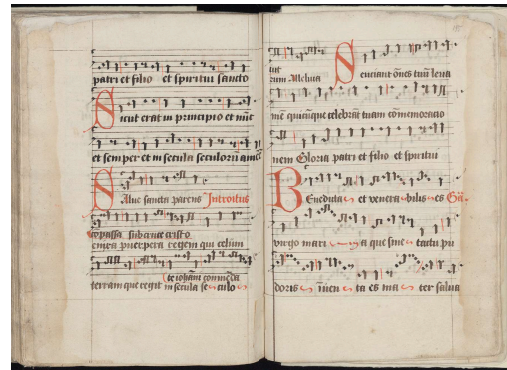 patri et filio et spiritui sancto
Sicut erat in principio et nūc
et semper et in secula seculorū amē
Salue sancta parens Introitus
enixa puerpera regem qui celum
terram que regit in secula se culo
rum Alleluia Senciant oēs tuū leua
mē quicūque celebrāt tuam cōmemoracio
nem Gloria patri et filio et spiritui
Benedicta et venera bilis es Ga.
virgo mari a que sine tactu pu
doris inuen ta es ma ter salua